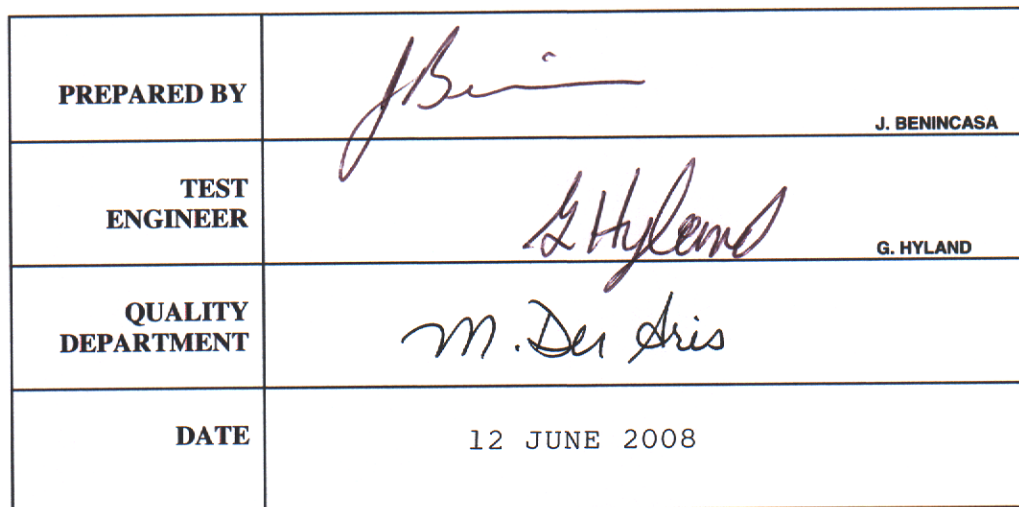 PREPARED BY
J Beni
J. BENINCASA
TEST
ENGINEER
G Hyland
G. HYLAND
QUALITY
DEPARTMENT
M. Der Aris
DATE
12 JUNE 2008